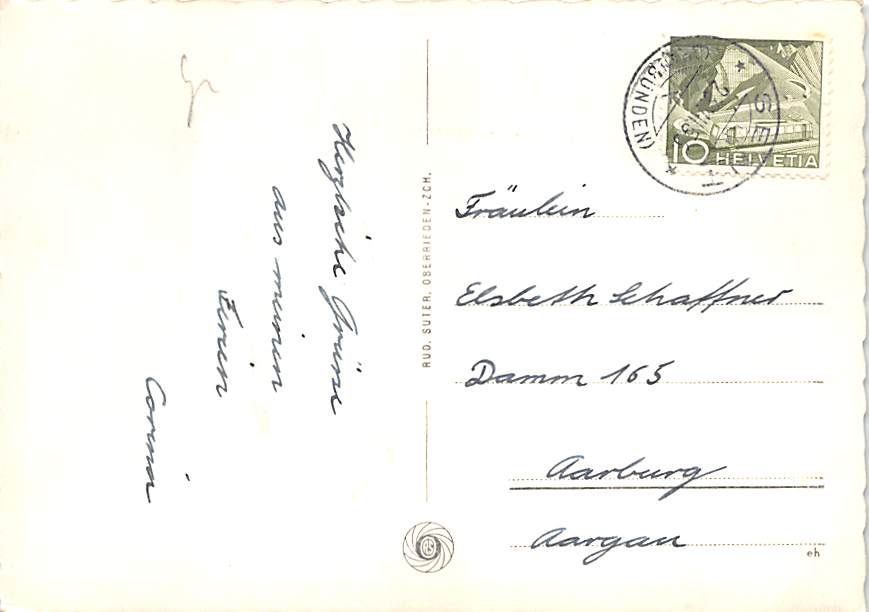 Herzliche Grüsse
aus meinen
Ferien
Corina
RUD. SUTER, OBERRIEDEN-ZCH.
10 HELVETIA
(GRAUBÜNDEN)
Fräulein
Elsbeth Schaffner
Damm 165
Aarburg
Aargau
eh